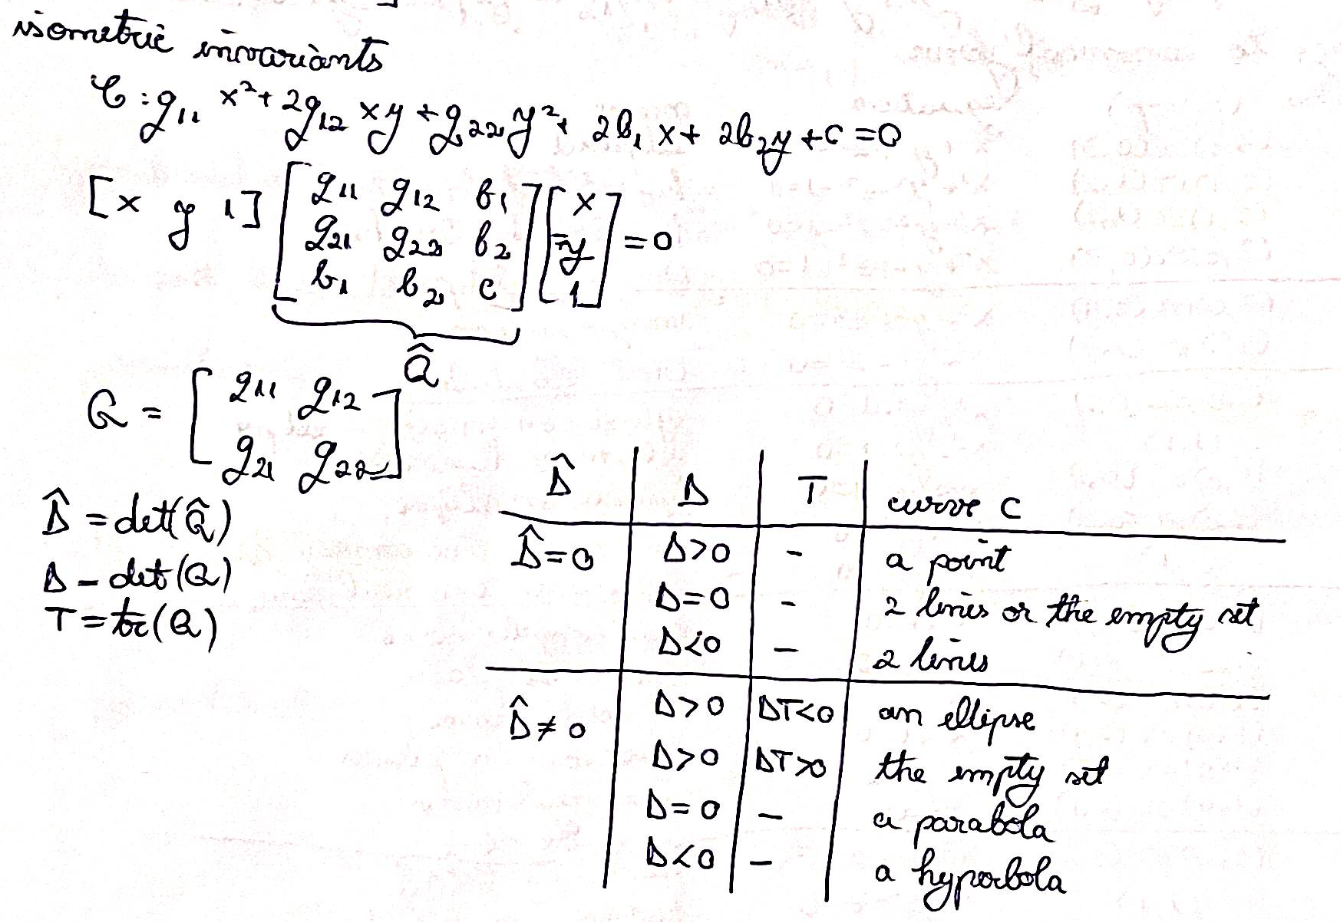 isometric invariants
C: q₁₁ x² + 2q₁₂ xy + q₂₂ y² + 2b₁ x + 2b₂y + c = 0
[x y 1] [q₁₁ q₁₂ b₁ [x
q₂₁ q₂₂ b₂ y = 0
b₁ b₂ c] 1]
Q̂
Q = [q₁₁ q₁₂
q₂₁ q₂₂]
Δ̂ = det(Q̂)
Δ - det(Q)
T = tr(Q)
Δ̂ | Δ | T | curve C
Δ̂=0 | Δ>0 | - | a point
Δ=0 | - | 2 lines or the empty set
Δ<0 | - | 2 lines
Δ̂≠0 | Δ>0 | ΔT<0 | an ellipse
Δ>0 | ΔT>0 | the empty set
Δ=0 | - | a parabola
Δ<0 | - | a hyperbola